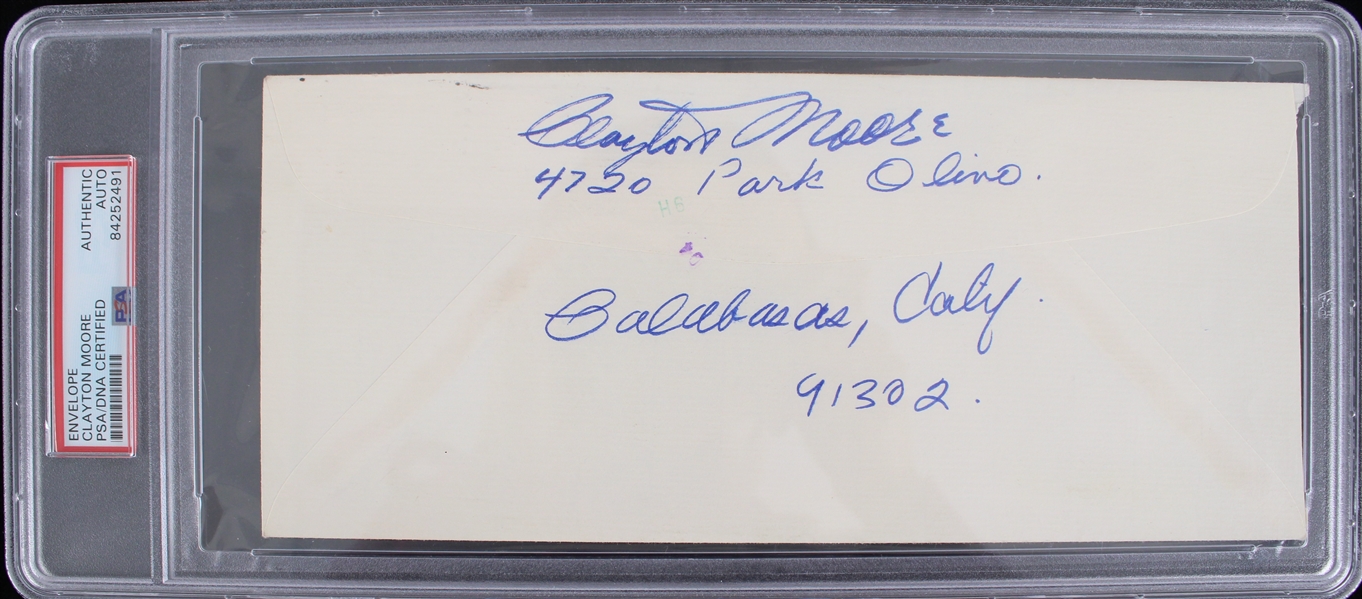 Clayton Moore
4720 Park Olivo.
H6
Calabasas, Calif.
91302.
ENVELOPE
CLAYTON MOORE
PSA/DNA CERTIFIED
PSA
AUTHENTIC
AUTO
84252491